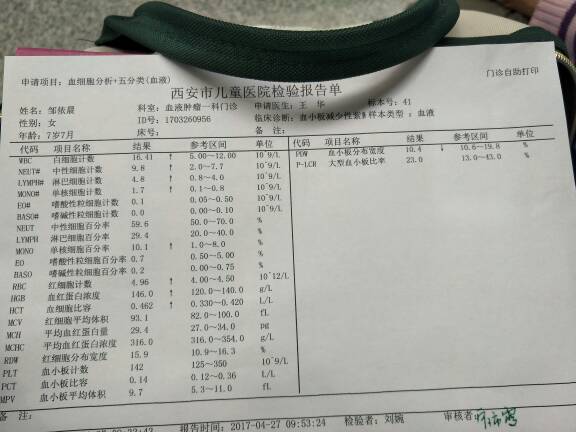 申请项目: 血细胞分析+五分类(血液)
门诊自助打印
西安市儿童医院检验报告单
姓名: 邹依晨 科室: 血液肿瘤一科门诊 申请医生: 王 华 标本号: 41
性别: 女 ID号: 1703260956 临床诊断: 血小板减少性紫 样本类型: 血液
年龄: 7岁7月 床号: 备 注:
代码 项目名称 结果 参考区间 单位 代码 项目名称 结果 参考区间 单位
WBC 白细胞计数 16.41 ↑ 5.00~12.00 10^9/L PDW 血小板分布宽度 10.4 ↓ 10.6~19.8 %
NEUT# 中性细胞计数 9.8 ↑ 2.0~7.7 10^9/L P-LCR 大型血小板比率 23.0 13.0~43.0 %
LYMPH# 淋巴细胞计数 4.8 ↑ 0.8~4.0 10^9/L
MONO# 单核细胞计数 1.7 ↑ 0.1~0.8 10^9/L
EO# 嗜酸性粒细胞计数 0.1 0.05~0.50 10^9/L
BASO# 嗜碱性粒细胞计数 0.0 0.00~0.10 10^9/L
NEUT 中性细胞百分率 59.6 50.0~70.0 %
LYMPH 淋巴细胞百分率 29.4 20.0~40.0 %
MONO 单核细胞百分率 10.1 ↑ 1.0~8.0 %
EO 嗜酸性粒细胞百分率 0.7 0.50~5.00 %
BASO 嗜碱性粒细胞百分率 0.2 0.00~0.75 %
RBC 红细胞计数 4.96 ↑ 4.00~4.50 10^12/L
HGB 血红蛋白浓度 146.0 ↑ 120.0~140.0 g/L
HCT 血细胞比容 0.462 ↑ 0.330~0.420 L/L
MCV 红细胞平均体积 93.1 82.0~100.0 fL
MCH 平均血红蛋白量 29.4 27.0~34.0 pg
MCHC 平均血红蛋白浓度 316.0 316.0~354.0 g/L
RDW 红细胞分布宽度 15.9 10.9~16.3 %
PLT 血小板计数 142 125~350 10^9/L
PCT 血小板比容 0.14 0.12~0.36 L/L
MPV 血小板平均体积 9.7 5.3~11.0 fL
备 注:
报告时间: 2017-04-27 09:53:24 检验者: 刘婉 审核者: